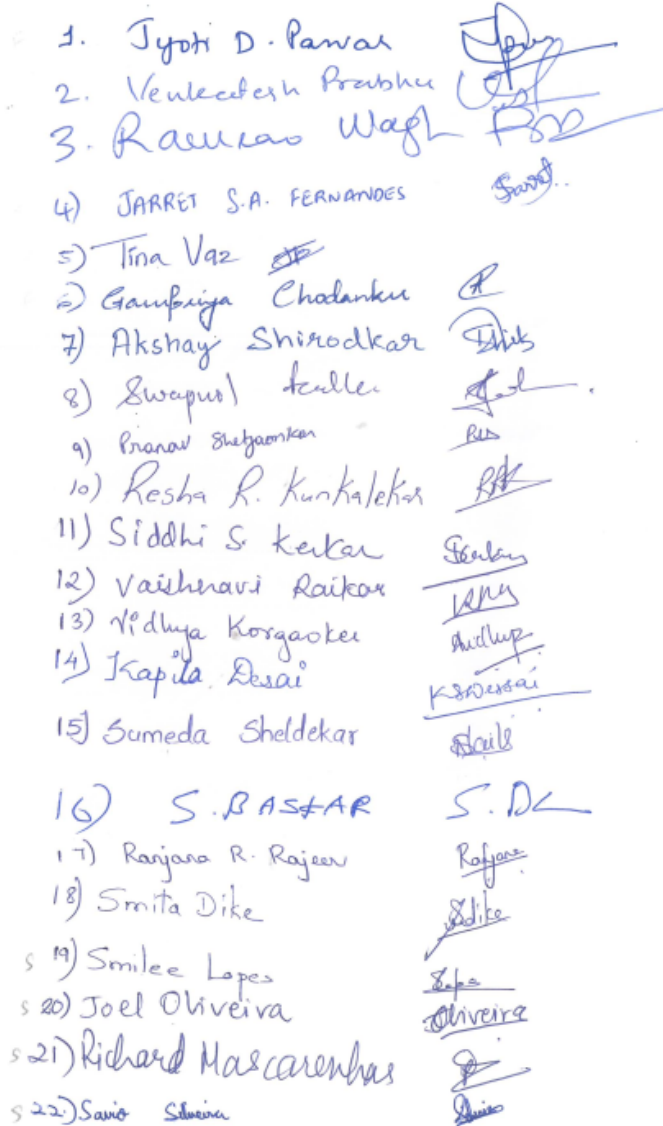 1. Jyoti D. Pawar
2. Venkatesh Prabhu
3. Ramrao Wagh
4) JARRET S.A. FERNANDES Jarret..
5) Tina Vaz
6) Chodanker
7) Akshay Shirodkar
8) Swapnil
9) Pranav Shetgaonkar
10) Resha R. Kunkalekar RRK
11) Siddhi S. Kerkar Skerkar
12) Vaishnavi Raikar
13) Vidhya Korgaoker
14) Kapila Desai KSDessai
15) Sumeda Sheldekar
16) S. BASKAR
17) Ranjana R. Rajeev Ranjana
18) Smita Dike Sdike
19) Smilee Lopes
s 20) Joel Oliveira Oliveira
s 21) Richard Mascarenhas
s 22.) Savio Silveira